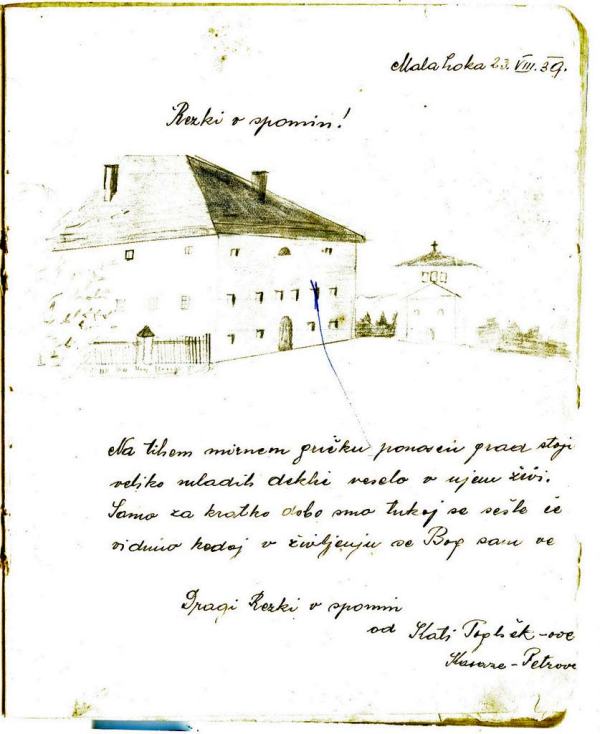 Mala Loka 23. VIII. 39.
Rezki v spomin!
Na tihem mirnem gričku ponosen grad stoji
veliko mladih deklic veselo v njem živi.
Samo za kratko dobo smo tukaj se sešle če
vidimo kedaj v življenju se Bog sam ve
Dragi Rezki v spomin
od Kati Poglšek-ove
Petrove